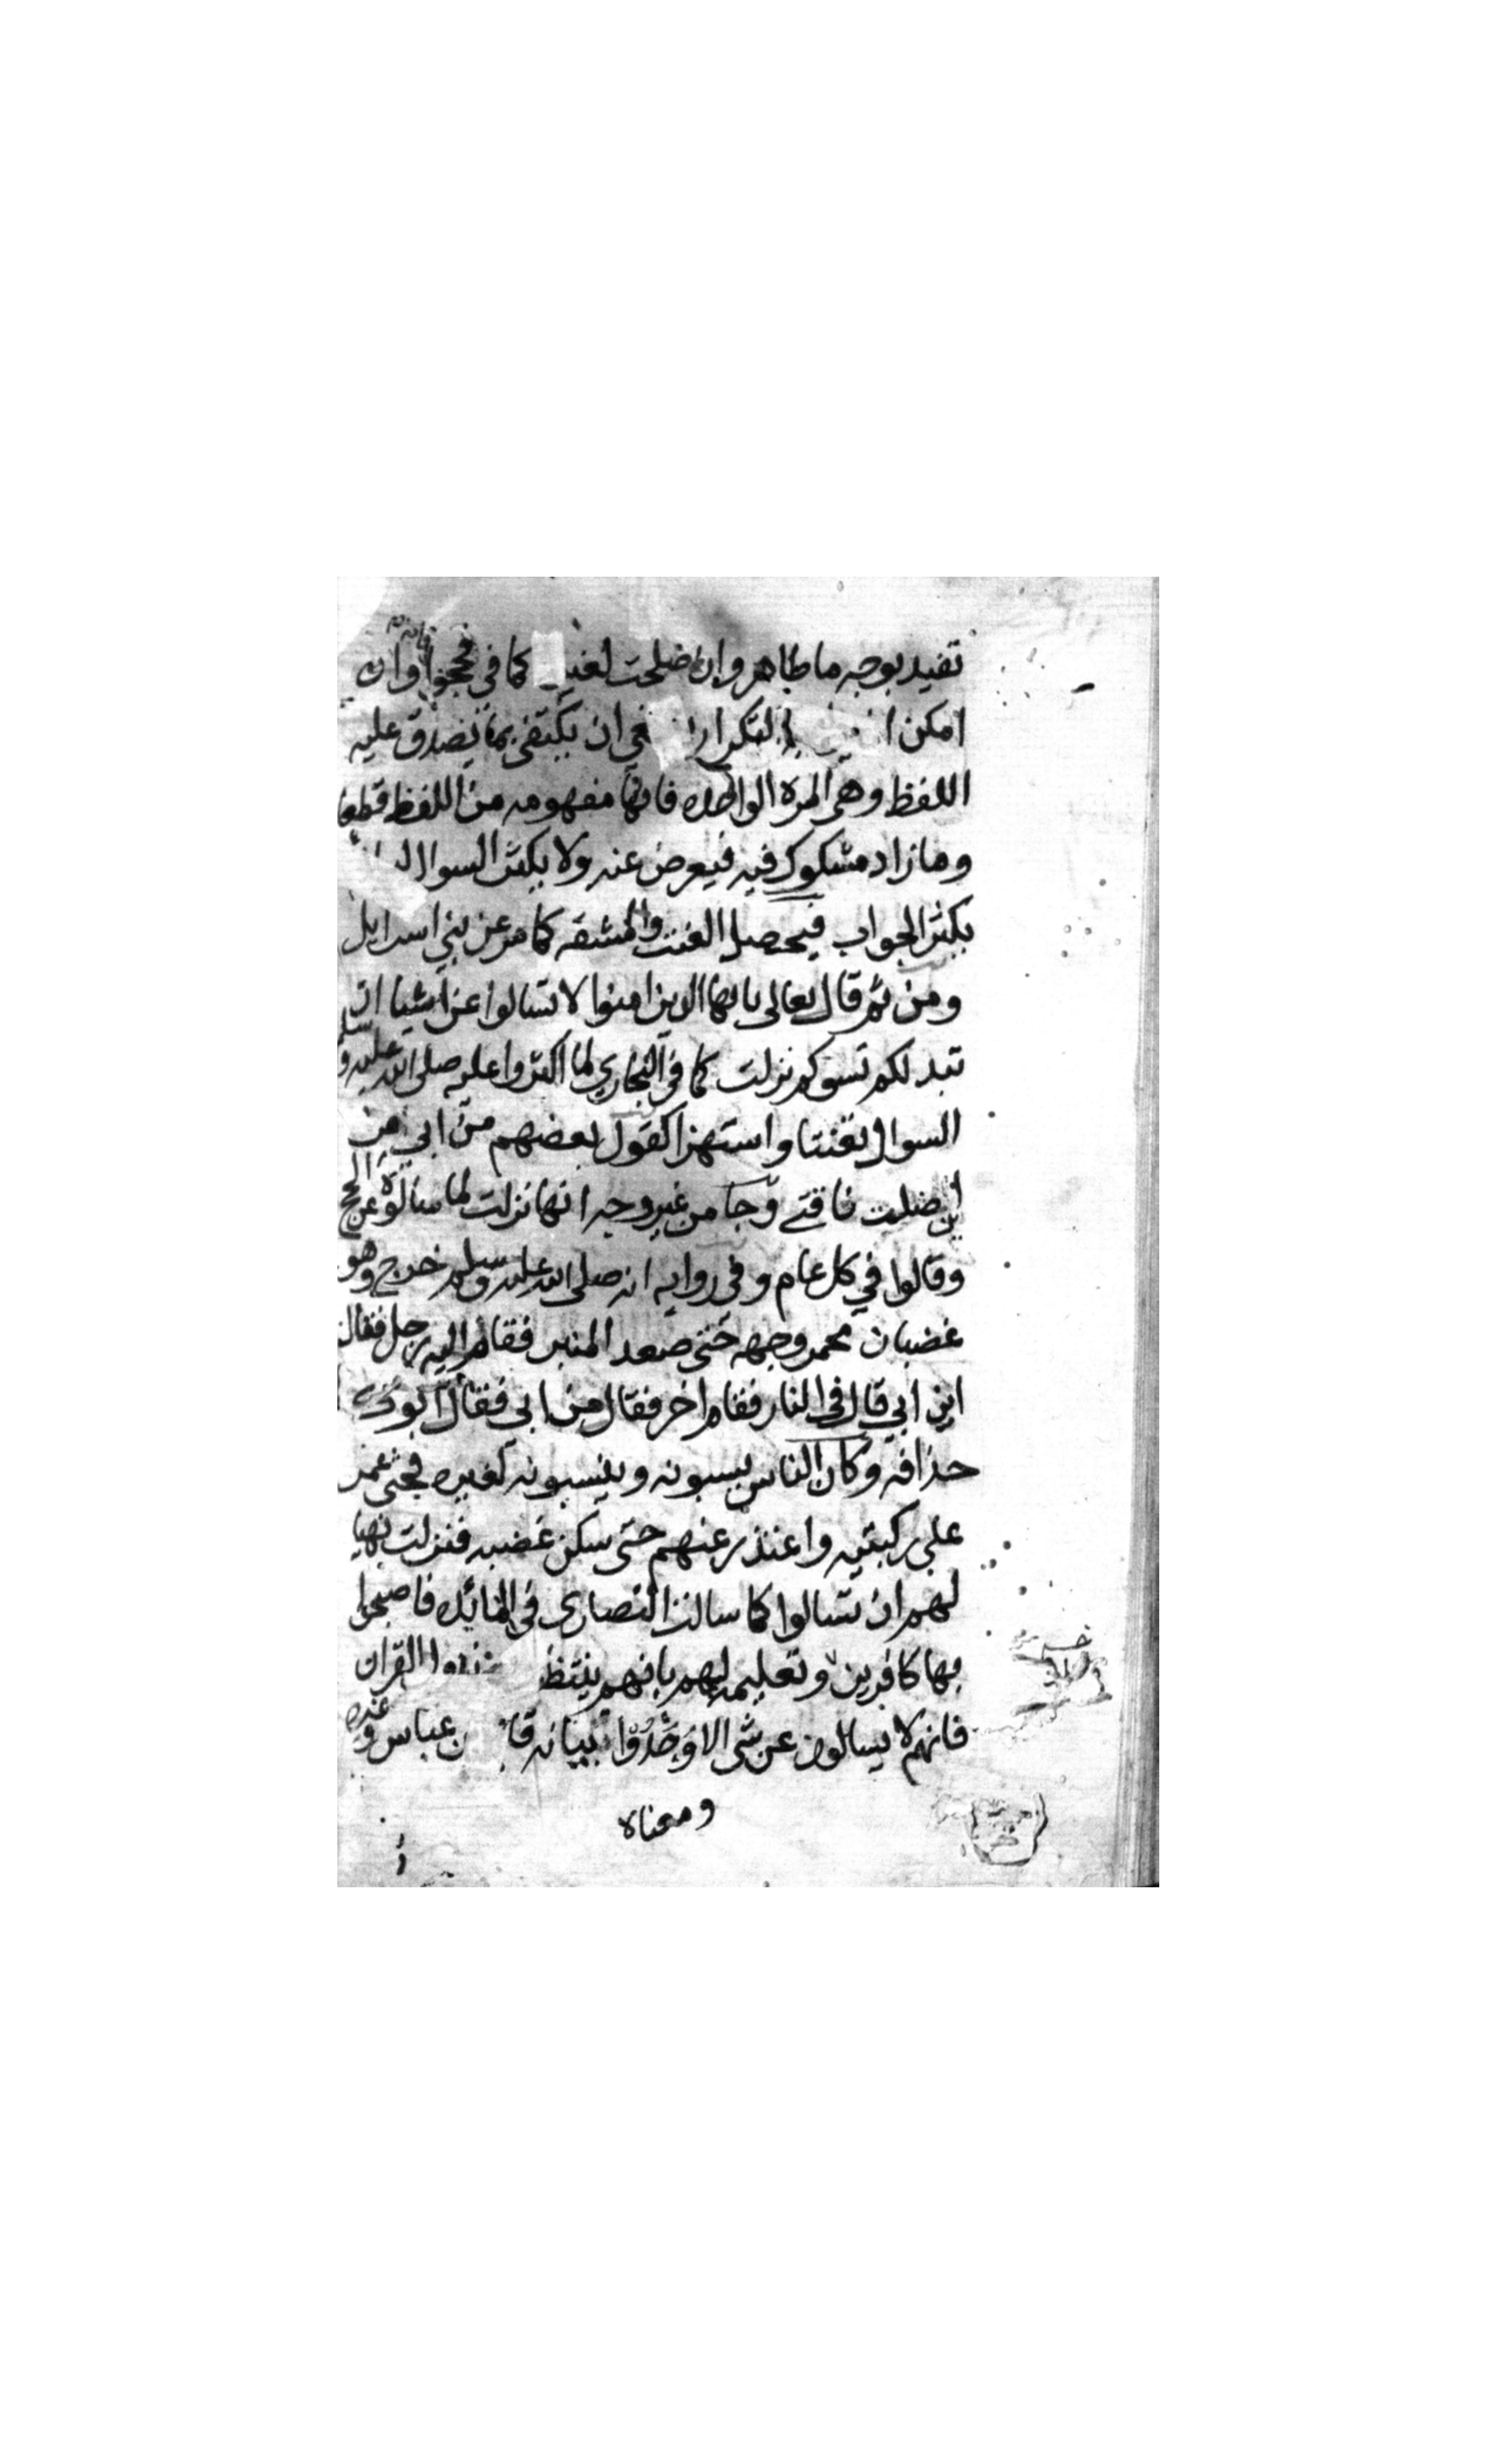 تفيد بوجه ما ظاهر وان صلحت لغيره كما في فحجوا فانه وان
امكن ا التكرار في ان يكتفى بما يصدق عليه
اللفظ وهي المره الواحده فانها مفهومه من اللفظ قطعا
وما زاد مشكوك فيه فيعرض عنه ولا يكثر السوال
يكثر الجواب فيحصل العنت والمشقه كما مر عن بني اسرايل
ومن ثم قال تعالى يا ايها الذين امنوا لا تسالوا عن اشيا ان
تبد لكم تسوكم نزلت كما في البخاري لما اكثروا عليه صلى الله عليه وسلم
السوال تعنتا واستهزا كقول بعضهم من ابي اين
اين ضلت ناقتي وجا من غير وجه انها نزلت لما سالوه عن الحج
وقالوا في كل عام وفي روايه انه صلى الله عليه وسلم خرج وهو
غضبان محمر وجهه حتى صعد المنبر فقام اليه رجل فقال
اين ابي قال في النار فقام اخر فقال من ابي فقال ابوك
حذافه وكان الناس يسبونه وينسبونه لغيره فجثى عمر
على ركبتيه واعتذر عنهم حتى سكن غضبه فنزلت نهيا
لهم ان تسالوا كما سالت النصارى في المائده فاصبحوا
بها كافرين وتعليمه لهم بانهم ينتظ نزول القران
فانهم لا يسالون عن شي الا وجدوا تبيانه قا ن عباس وغيره
ومعناه